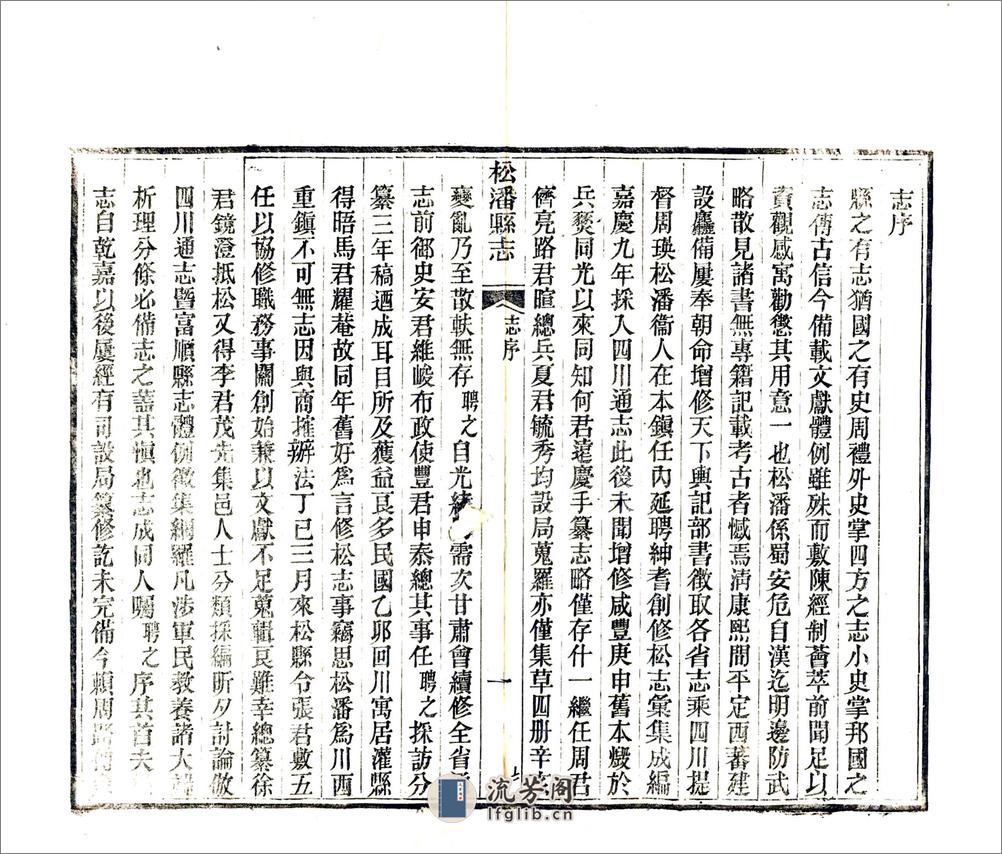 志序
縣之有志猶國之有史周禮外史掌四方之志小史掌邦國之
志傳古信今備載文獻體例雖殊而敷陳經制薈萃前聞足以
資觀感寓勸懲其用意一也松潘係蜀安危自漢迄明邊防武
略散見諸書無專籍記載考古者憾焉淸康熙間平定西蕃建
設廳備屢奉朝命增修天下輿記部書徵取各省志乘四川提
督周瑛松潘衞人在本鎭任內延聘紳耆創修松志彙集成編
嘉慶九年採入四川通志此後未聞增修咸豐庚申舊本燬於
兵燹同光以來同知何君遠慶手纂志略僅存什一繼任周君
儕亮路君暄總兵夏君毓秀均設局蒐羅亦僅集草四册辛亥
松潘縣志
志序
一
變亂乃至散軼無存聘之自光緒需次甘肅會續修全省
志前御史安君維峻布政使豐君申泰總其事任聘之採訪分
纂三年稿迺成耳目所及獲益良多民國乙邜回川寓居灌縣
得晤馬君耀菴故同年舊好爲言修松志事竊思松潘爲川西
重鎭不可無志因與商搉辦法丁巳三月來松縣令張君敷五
任以協修職務事關創始兼以文獻不足蒐輯良難幸總纂徐
君鏡澄抵松又得李君茂先集邑人士分類採編昕夕討論倣
四川通志暨富順縣志體例徵集網羅凡涉軍民敎養諸大端
析理分條必備志之蓋其愼也志成同人囑聘之序其首夫
志自乾嘉以後屢經有司設局纂修訖未完備今賴周路
流芳阁
lfglib.cn